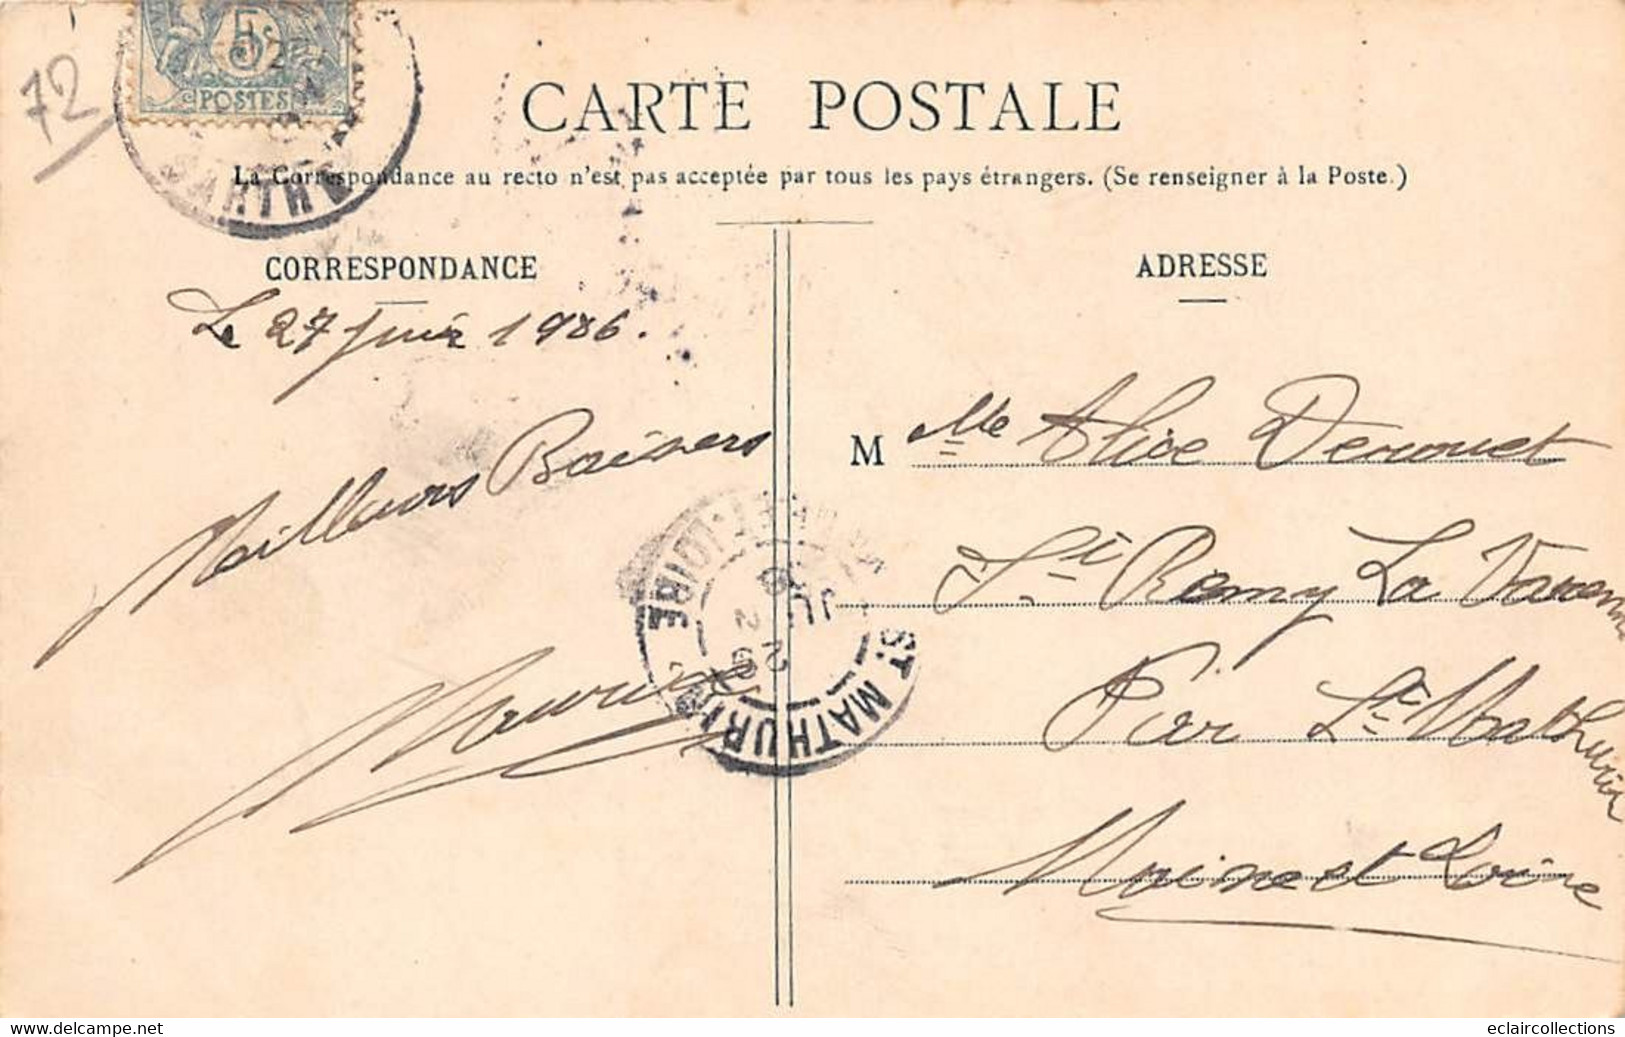 72
5
POSTES
SARTHE
CARTE POSTALE
La Correspondance au recto n'est pas acceptée par tous les pays étrangers. (Se renseigner à la Poste.)
CORRESPONDANCE
Le 27 juin 1906.
Meilleurs Baisers
Maurice
ST MATHURIN
LOIRE
ADRESSE
M Mlle Alice Derouet
St Remy La Varenne
Par St Mathurin
Maine et Loire
delcampe.net
eclaircollections